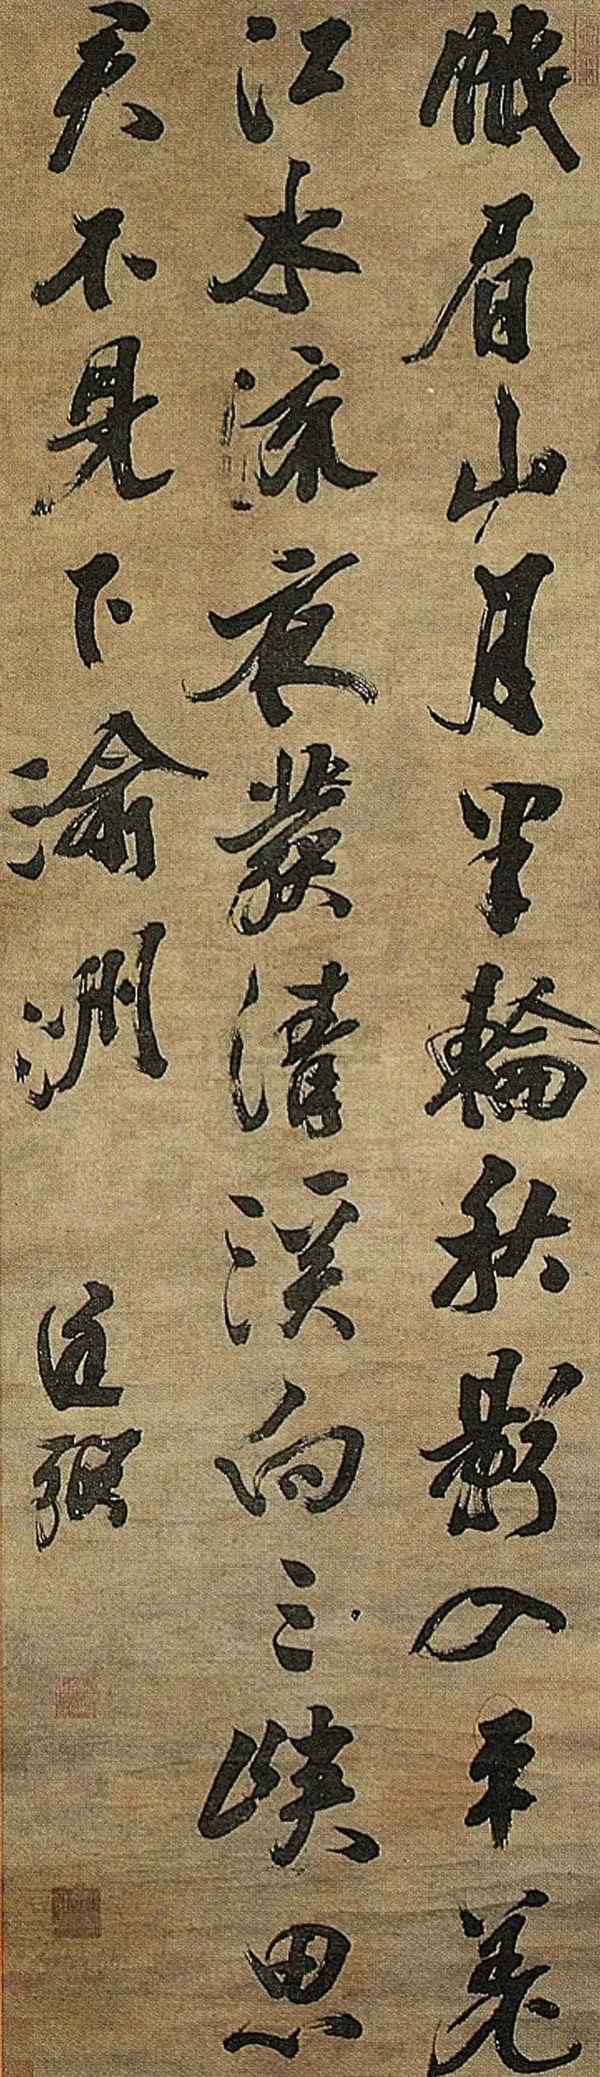 峨眉山月半輪秋影入平羌
江水流夜發清溪向三峽思
君不見下渝洲
廷弼